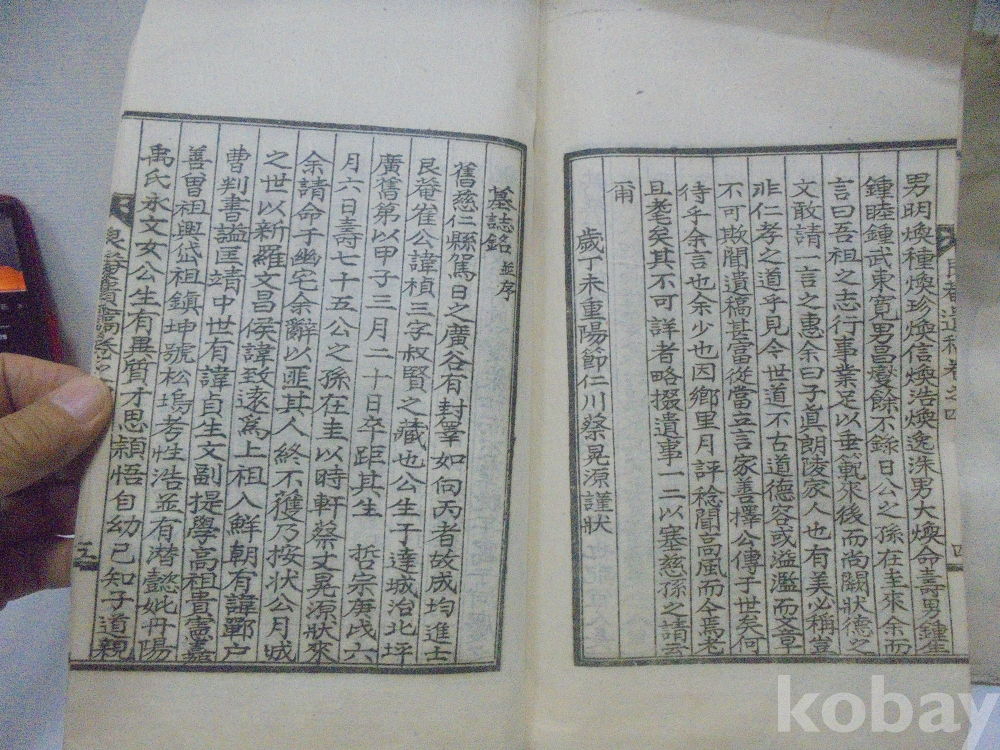 男明煥種煥珍煥信煥浩煥逸洙男大煥命壽男鍾
鍾睦鍾武東寬男昌燮餘不錄日公之孫在圭來余而
言曰吾祖之志行事業足以垂範來後而尚闕狀德之
文敢請一言之惠余曰子眞朗陵家人也有美必稱豈
非仁孝之道乎見今世道不古道德容或溢濫而文章
不可欺聞遺稿甚當從當立言家善擇公傳于世矣何
待乎余言也余少也因鄉里月評稔聞高風而今焉老
且耄矣其不可詳者略掇遺事一二以塞慈孫之請云
爾
歲丁未重陽節仁川蔡晃源謹狀
墓誌銘 並序
舊慈仁縣駕日之廣谷有封睪如向丙者故成均進士
艮菴崔公諱楨三字叔賢之藏也公生于達城治北坪
廣舊第以甲子三月二十日卒距其生 哲宗庚戌六
月六日壽七十五公之孫在圭以時軒蔡丈晃源狀來
余請命于幽宅余辭以匪其人終不獲乃按狀公月城
之世以新羅文昌侯諱致遠爲上祖入鮮朝有諱鄲戶
曹判書謚匡靖中世有諱貞生文副提學高祖貴憲嘉
善曾祖興岱祖鎭坤號松塢考性浩並有潜懿妣丹陽
禹氏永文女公生有異質才思穎悟自幼已知子道親
遺稿卷之四
四
五